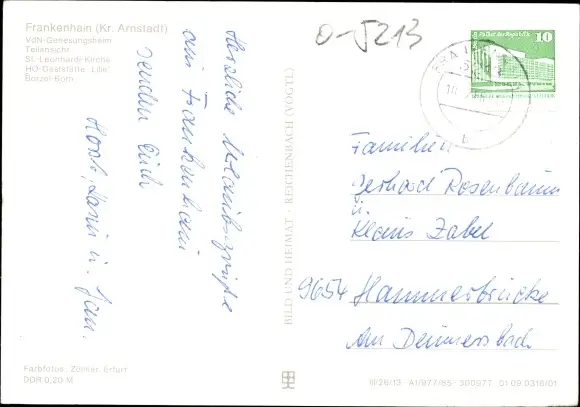 Frankenhain (Kr. Arnstadt)
VdN-Genesungsheim
Teilansicht
St.-Leonhardi-Kirche
HO-Gaststätte "Lilie"
Borzel-Born
Herzliche Urlaubsgrüße
aus Frankenhain
senden Euch
Horst, u. Jan.
Farbfotos: Zöllner, Erfurt
DDR 0,20 M
BILD UND HEIMAT · REICHENBACH (VOGTL)
0-5213
10
b
Familien
Gerhard Rosenbaum
u.
Klaus Zabel
9654 Hammerbrücke
Am
III/26/13 A1/877/85 300977 01 09 0316/01